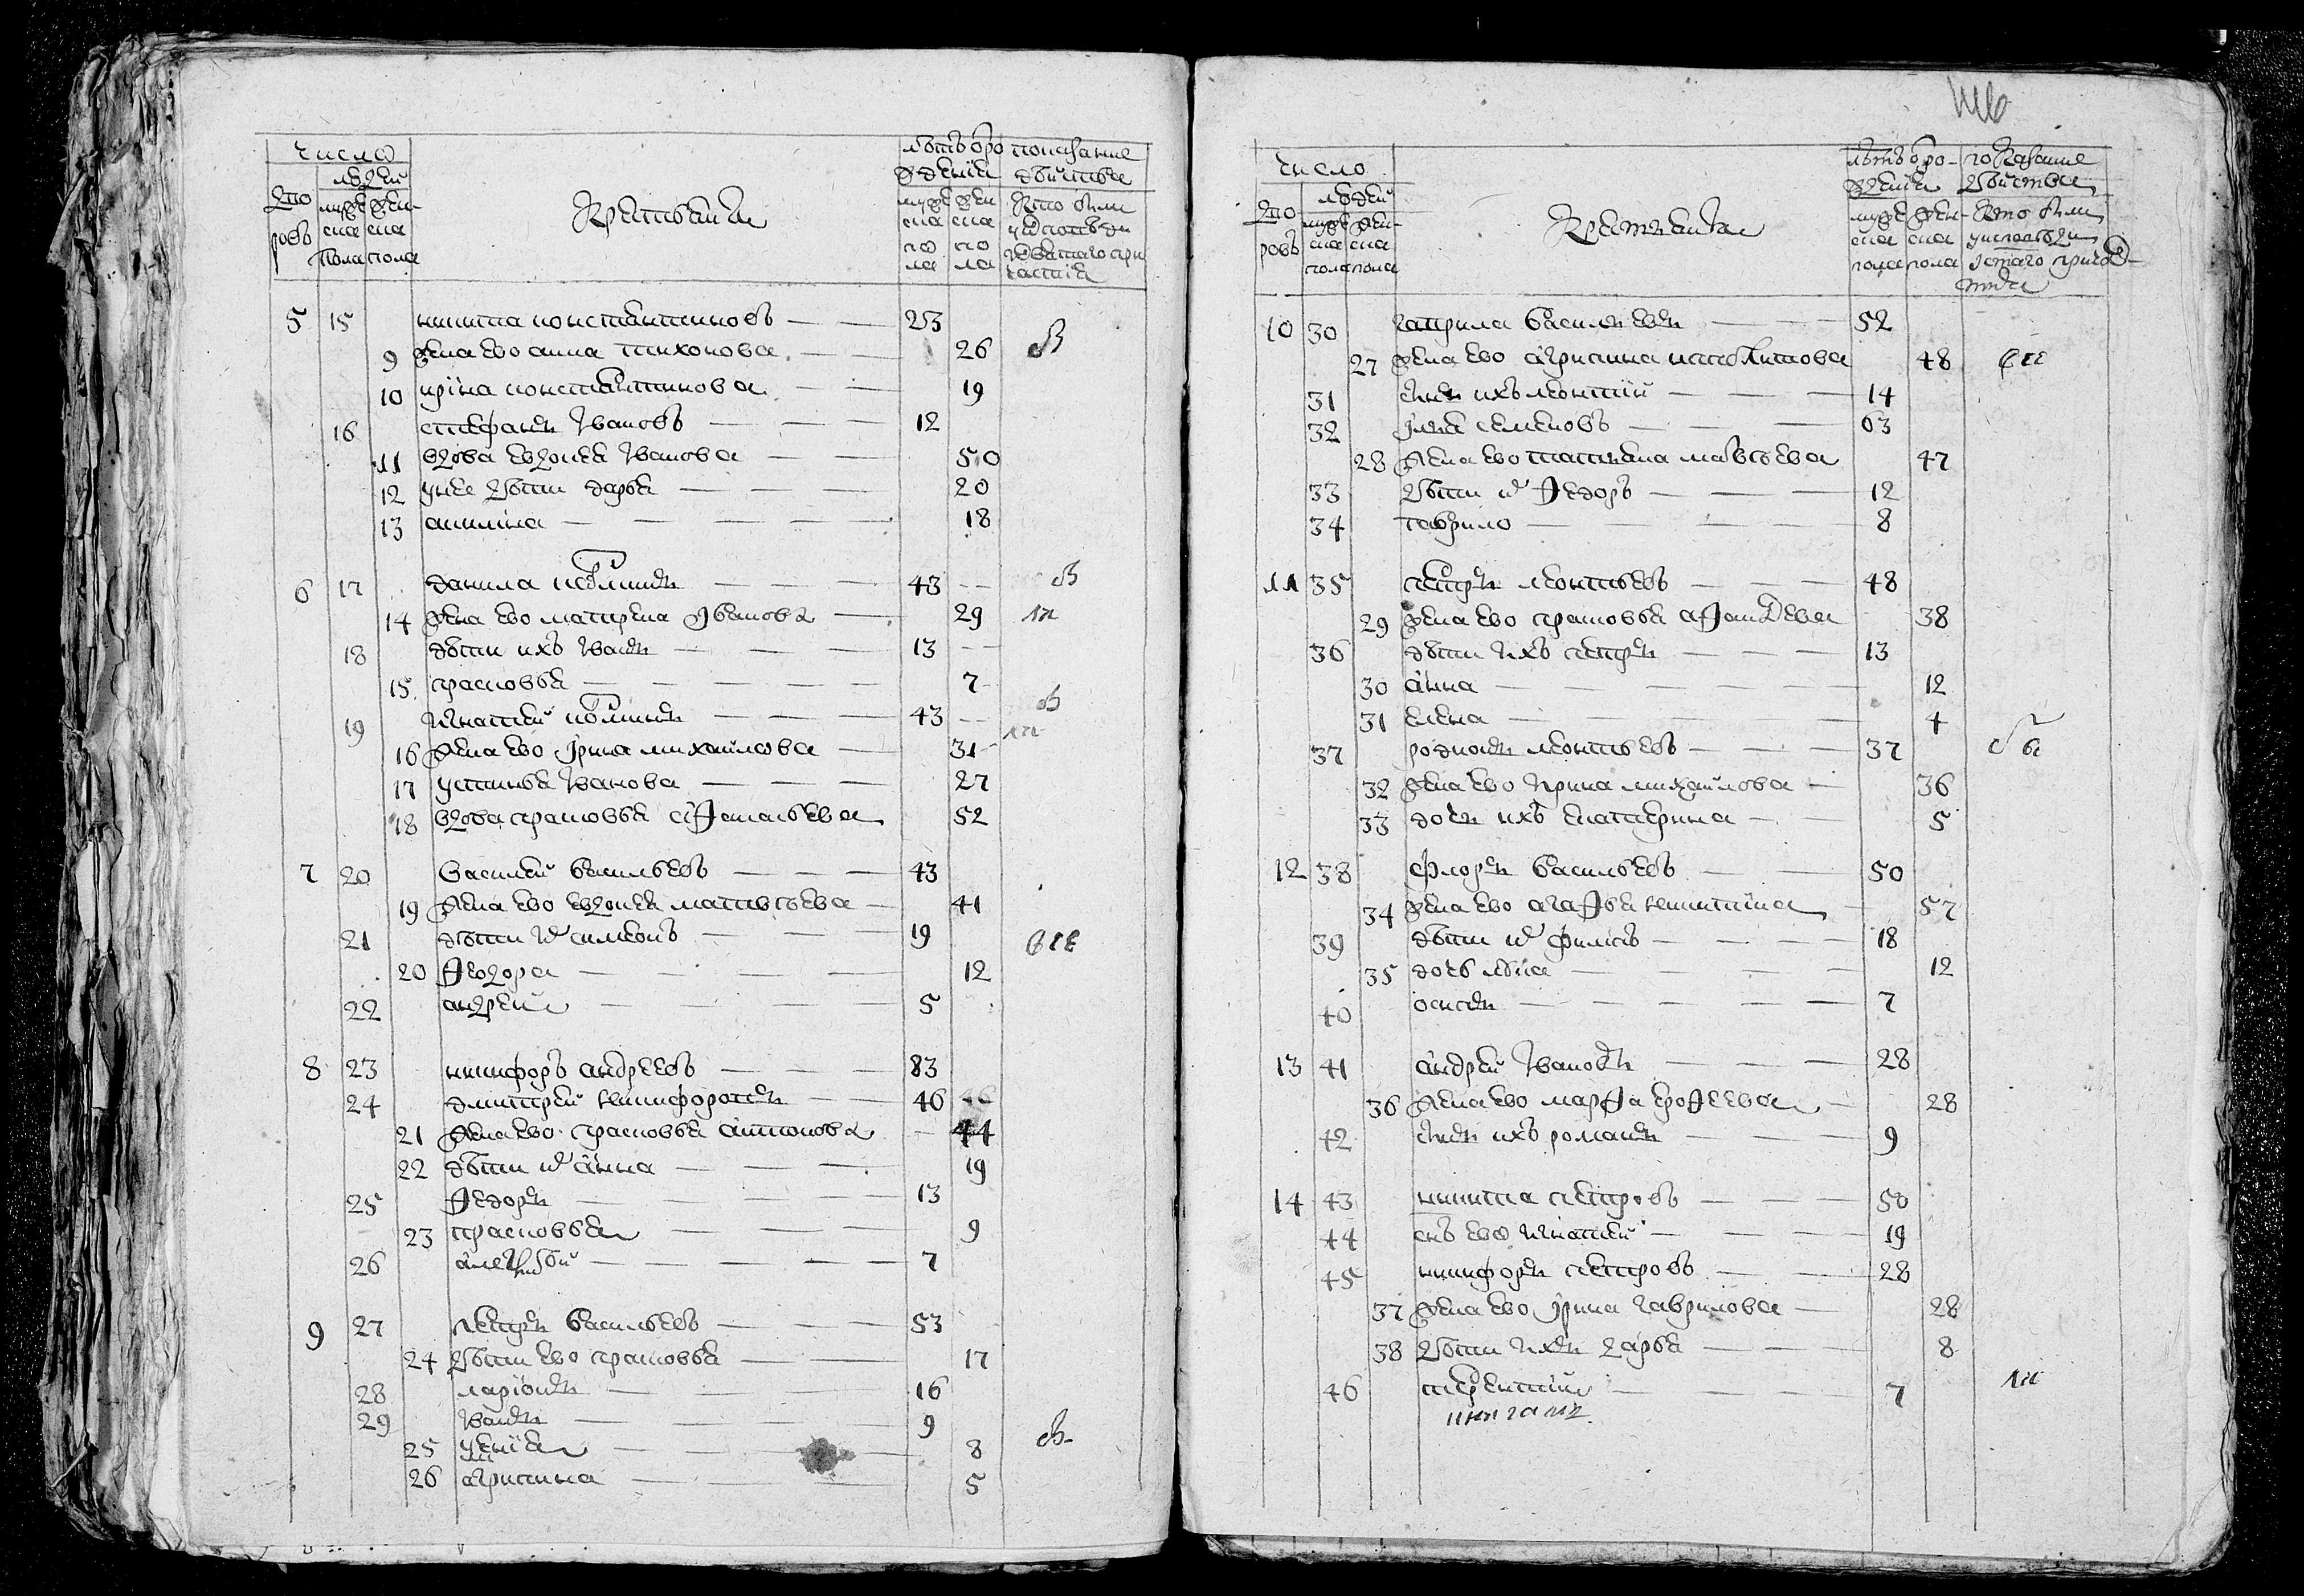 число
лѣтъ о ро
показание
людей
ждения
дѣиства
дво
ровъ
мужс женс
ска ска
пола пола
Крестьяня
мужс жен
ска ска
по по
ла ла
кто были
у исповѣди
и святаго при
частия
5 15 никита констянтиновъ — — 23
9 жена ево анна тихонова — — 26
10 ирина констянтинова — — 19
16 стефанъ Ивановъ — — — 12
11 вдова евдокея Иванова — — 50
12 у нее дѣти дарья — — — 20
13 акилина — — — — — 18
6 17 данила — — — 43
14 жена ево матрена Иванова — 29
18 дѣти ихъ Иванъ — — — 13
15 прасковья — — — — — 7
19 Игнатей — — — 43
16 жена ево Ирина михайлова — 31
17 устинья Иванова — — — 27
18 вдова прасковья афанасьева 52
7 20 Василей васильевъ — — — 43
19 жена ево евдокея матвѣева — 41
21 дѣти их симеонъ — — — 19
20 Федора — — — — 12
22 андрей — — — — 5
8 23 никифоръ андреевъ — — — 83
24 дмитрей никифоровъ — — 46
21 жена ево прасковья антонова — 44
22 дѣти их анна — — — 19
25 Федоръ — — — — 13
23 прасковья — — — — 9
26 алексѣй — — — — — 7
9 27 петръ васильевъ — — — 53
24 дѣти ево прасковья — — — 17
28 ларионъ — — — 16
29 Иванъ — — — — 9
25 — — — — 8
26 агрипина — — — 5
число
лѣтъ о ро-
показание
людей
ждения
дѣиства
дво
ровъ
мужс жен-
ска ска
пола пола
Крестьяня
мужс жен-
ска ска
пола пола
кто были
у исповѣди
и святаго
10 30 гаврила васильевъ — — 52
27 жена ево агрипина 48
31 сынъ ихъ леонтий — — — 14
32 Илья семеновъ — — — 63
28 жена ево татияна матвѣева 47
33 дѣти их Федоръ — — — 12
34 гаврило — — — — 8
11 35 петръ леонтьевъ — — — 48
29 жена ево прасковья афанасева 38
36 дѣти ихъ петръ — — — 13
30 анна — — — — — — 12
31 елена — — — — — 4
37 родионъ леонтьевъ — — — 37
32 жена ево Ирина михайлова — 36
33 дочь ихъ екатерина — — 5
12 38 флоръ васильевъ — — 50
34 жена ево агафья никитина — 57
39 дѣти их филипъ — — — — 18
35 дочь — — — — 12
40 осипъ — — — — — 7
13 41 андрей Ивановъ — — — 28
36 жена ево марфа ерофеева — 28
42 сынъ ихъ романъ — — — 9
14 43 никита петровъ — — — 50
44 снъ ево Игнатей — — — 19
45 никифоръ петровъ — — 28
37 жена ево Ирина гаврилова — 28
38 дѣти ихъ дарья — — — 8
46 терентий — — — — 7